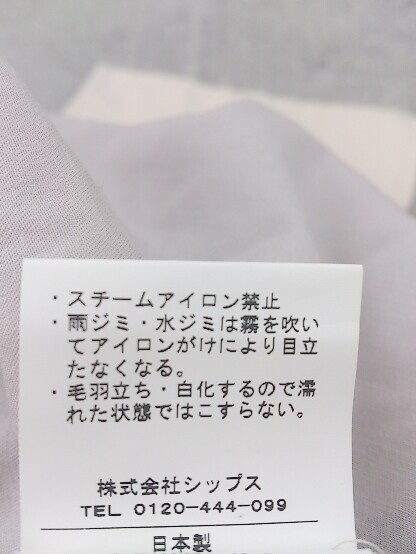 ・スチームアイロン禁止
・雨ジミ・水ジミは霧を吹い
てアイロンがけにより目立
たなくなる。
・毛羽立ち・白化するので濡
れた状態ではこすらない。
株式会社シップス
TEL 0120-444-099
日本製